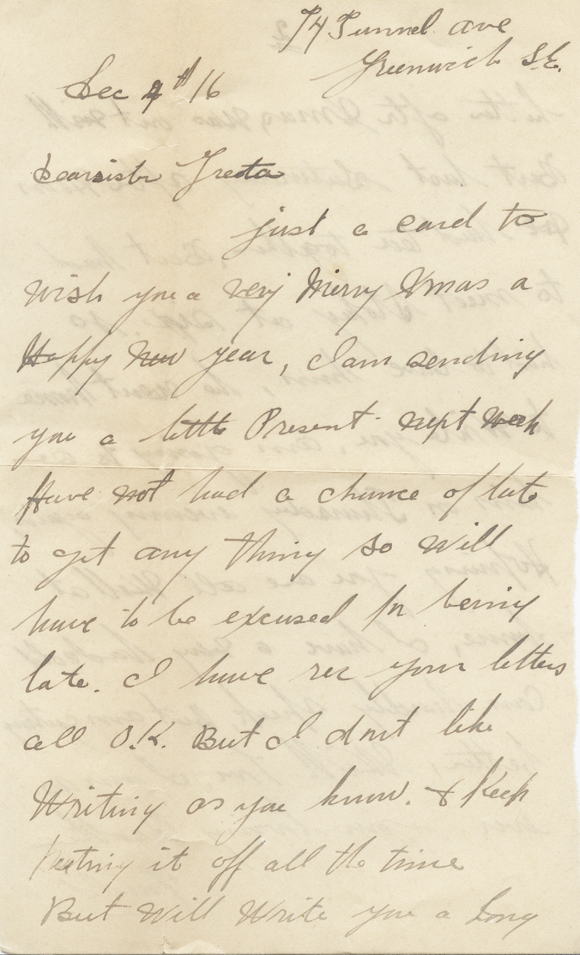 74 Tunnel ave
Greenwich S.E.
Dec 4th/16
Dear sister Greta
just a card to
wish you a very Merry Xmas a
Happy New year, I am sending
you a little Present next week
Have not had a chance of late
to get any thing so Will
have to be excused for being
late. I have rec your letters
all O.K. But I dont like
Writing as you know. & Keep
Puting it off all the time
But Will Write you a long